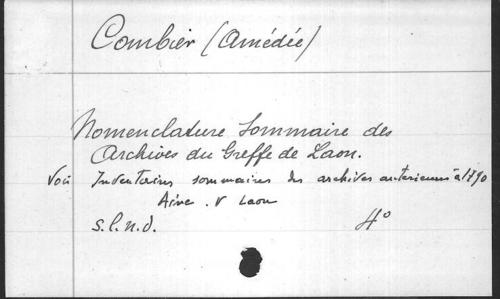 Combier (Amédée)
Nomenclature Sommaire des
Archives du Greffe de Laon.
Voir Inventaires sommaires des archives antérieures à 1790
Aisne. V Laon
s.l.n.d. 4°